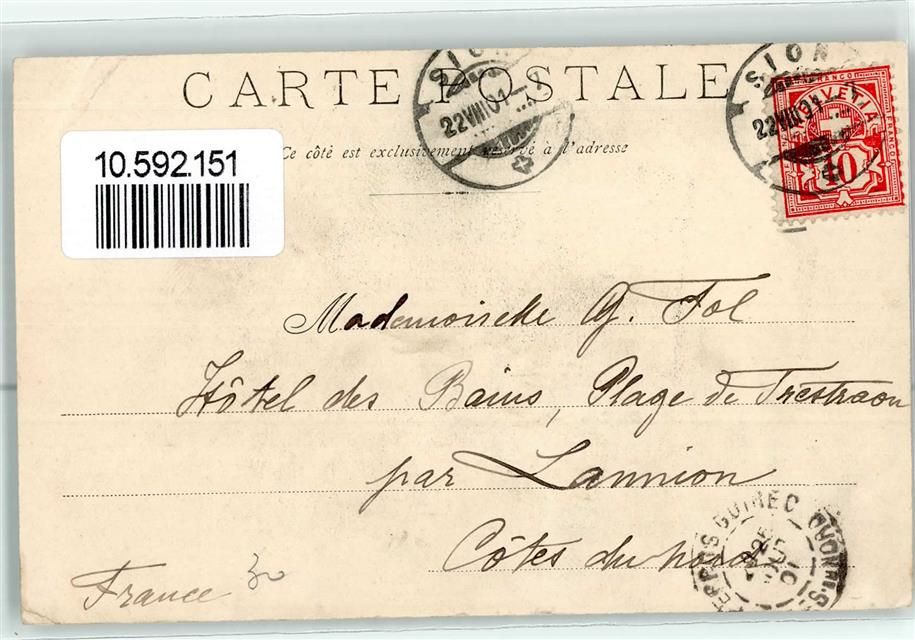 CARTE POSTALE
SION
22 VIII 01
SION
22 VIII 01
FRANCO
HELVETIA
10
10.592.151
Ce côté est exclusivement réservé à l'adresse
Mademoiselle G. Fol
Hôtel des Bains, Plage de Trestraou
par Lannion
Côtes du nord
PERROS GUIREC
France
30